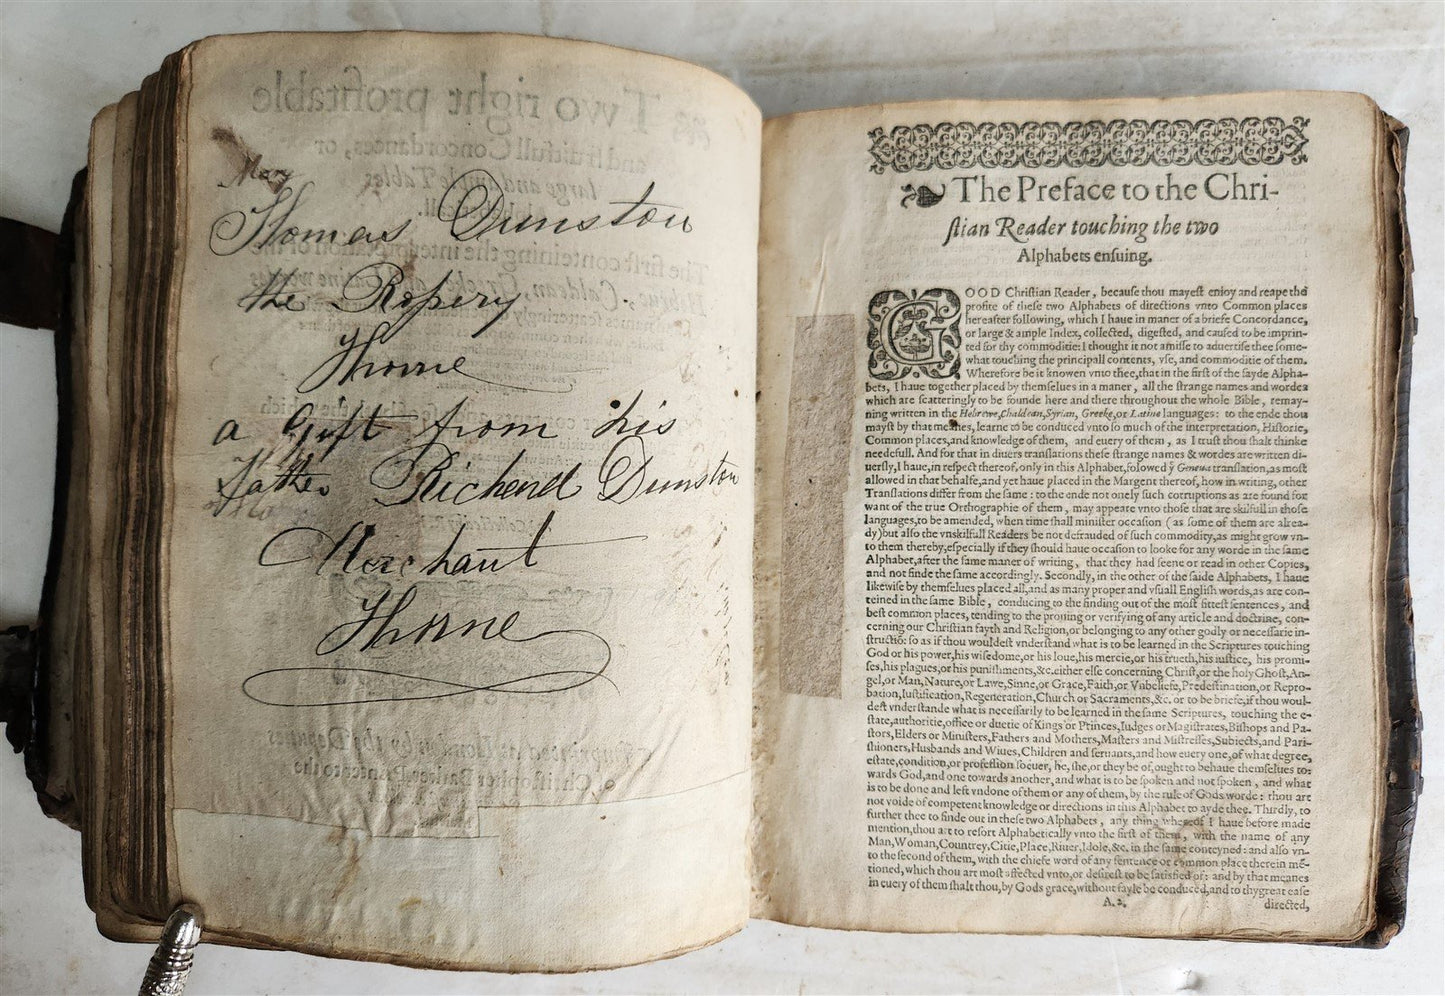 May
Thomas Dunston
the Ropery
Thorne
a Gift from his
Father Richard Dunston
Merchant
Thorne
Two right profitable
and fruitfull Concordances, or
large and ample Tables
The first containing the interpretation of the
by the Deputies
of Christopher Barker, Printer to the
The Preface to the Chri-
stian Reader touching the two
Alphabets ensuing.
GOOD Christian Reader, because thou mayest enioy and reape the
profite of these two Alphabets of directions vnto Common places
hereafter following, which I haue in maner of a briefe Concordance,
or large & ample Index, collected, digested, and caused to be imprin-
ted for thy commoditie: I thought it not amisse to aduertise thee some-
what touching the principall contents, vse, and commoditie of them.
Wherefore be it knowen vnto thee, that in the first of the sayde Alpha-
bets, I haue together placed by themselues in a maner, all the strange names and wordes
which are scatteringly to be founde here and there throughout the whole Bible, remay-
ning written in the Hebrewe, Chaldean, Syrian, Greeke, or Latine languages: to the ende thou
mayst by that meanes, learne to be conduced vnto so much of the interpretation, Historie,
Common places, and knowledge of them, and euery of them, as I trust thou shalt thinke
needefull. And for that in diuers translations these strange names & wordes are written di-
uersly, I haue, in respect thereof, only in this Alphabet, folowed ye Geneua translation, as most
allowed in that behalfe, and yet haue placed in the Margent thereof, how in writing, other
Translations differ from the same: to the ende not onely such corruptions as are found for
want of the true Orthographie of them, may appeare vnto those that are skilfull in those
languages, to be amended, when time shall minister occasion (as some of them are alrea-
dy) but also the vnskilfull Readers be not defrauded of such commodity, as might grow vn-
to them thereby, especially if they should haue occasion to looke for any worde in the same
Alphabet, after the same maner of writing, that they had seene or read in other Copies,
and not finde the same accordingly. Secondly, in the other of the saide Alphabets, I haue
likewise by themselues placed all, and as many proper and vsuall English words, as are con-
teined in the same Bible, conducing to the finding out of the most fittest sentences, and
best common places, tending to the prouing or verifying of any article and doctrine, con-
cerning our Christian fayth and Religion, or belonging to any other godly or necessarie in-
structiō: so as if thou wouldest vnderstand what is to be learned in the Scriptures touching
God or his power, his wisedome, or his loue, his mercie, or his trueth, his iustice, his promi-
ses, his plagues, or his punishments, &c. either else concerning Christ, or the holy Ghost, An-
gel, or Man, Nature, or Lawe, Sinne, or Grace, Faith, or Vnbeliefe, Predestination, or Repro-
bation, Iustification, Regeneration, Church or Sacraments, &c. or to be briefe, if thou woul-
dest vnderstande what is necessarily to be learned in the same Scriptures, touching the e-
state, authoritie, office or duetie of Kings or Princes, Iudges or Magistrates, Bishops and Pa-
stors, Elders or Ministers, Fathers and Mothers, Masters and Mistresses, Subiects, and Pari-
shioners, Husbands and Wiues, Children and seruants, and how euery one, of what degree,
estate, condition, or profession soeuer, he, she, or they be, ought to behaue themselues to-
wards God, and one towards another, and what is to be spoken and not spoken, and what
is to be done and left vndone of them or any of them, by the rule of Gods worde: thou art
not voide of competent knowledge or directions in this Alphabet to ayde thee. Thirdly, to
further thee to finde out in these two Alphabets, any thing whereof I haue before made
mention, thou art to resort Alphabetically vnto the first of them, with the name of any
Man, Woman, Countrey, Citie, Place, Riuer, Idole, &c. in the same conteyned: and also vn-
to the second of them, with the chiefe word of any sentence or common place therein mē-
tioned, which thou art most affected vnto, or desirest to be satisfied of: and by that meanes
in euery of them shalt thou, by Gods grace, without fayle be conduced, and to thy great ease
A.2.
directed,